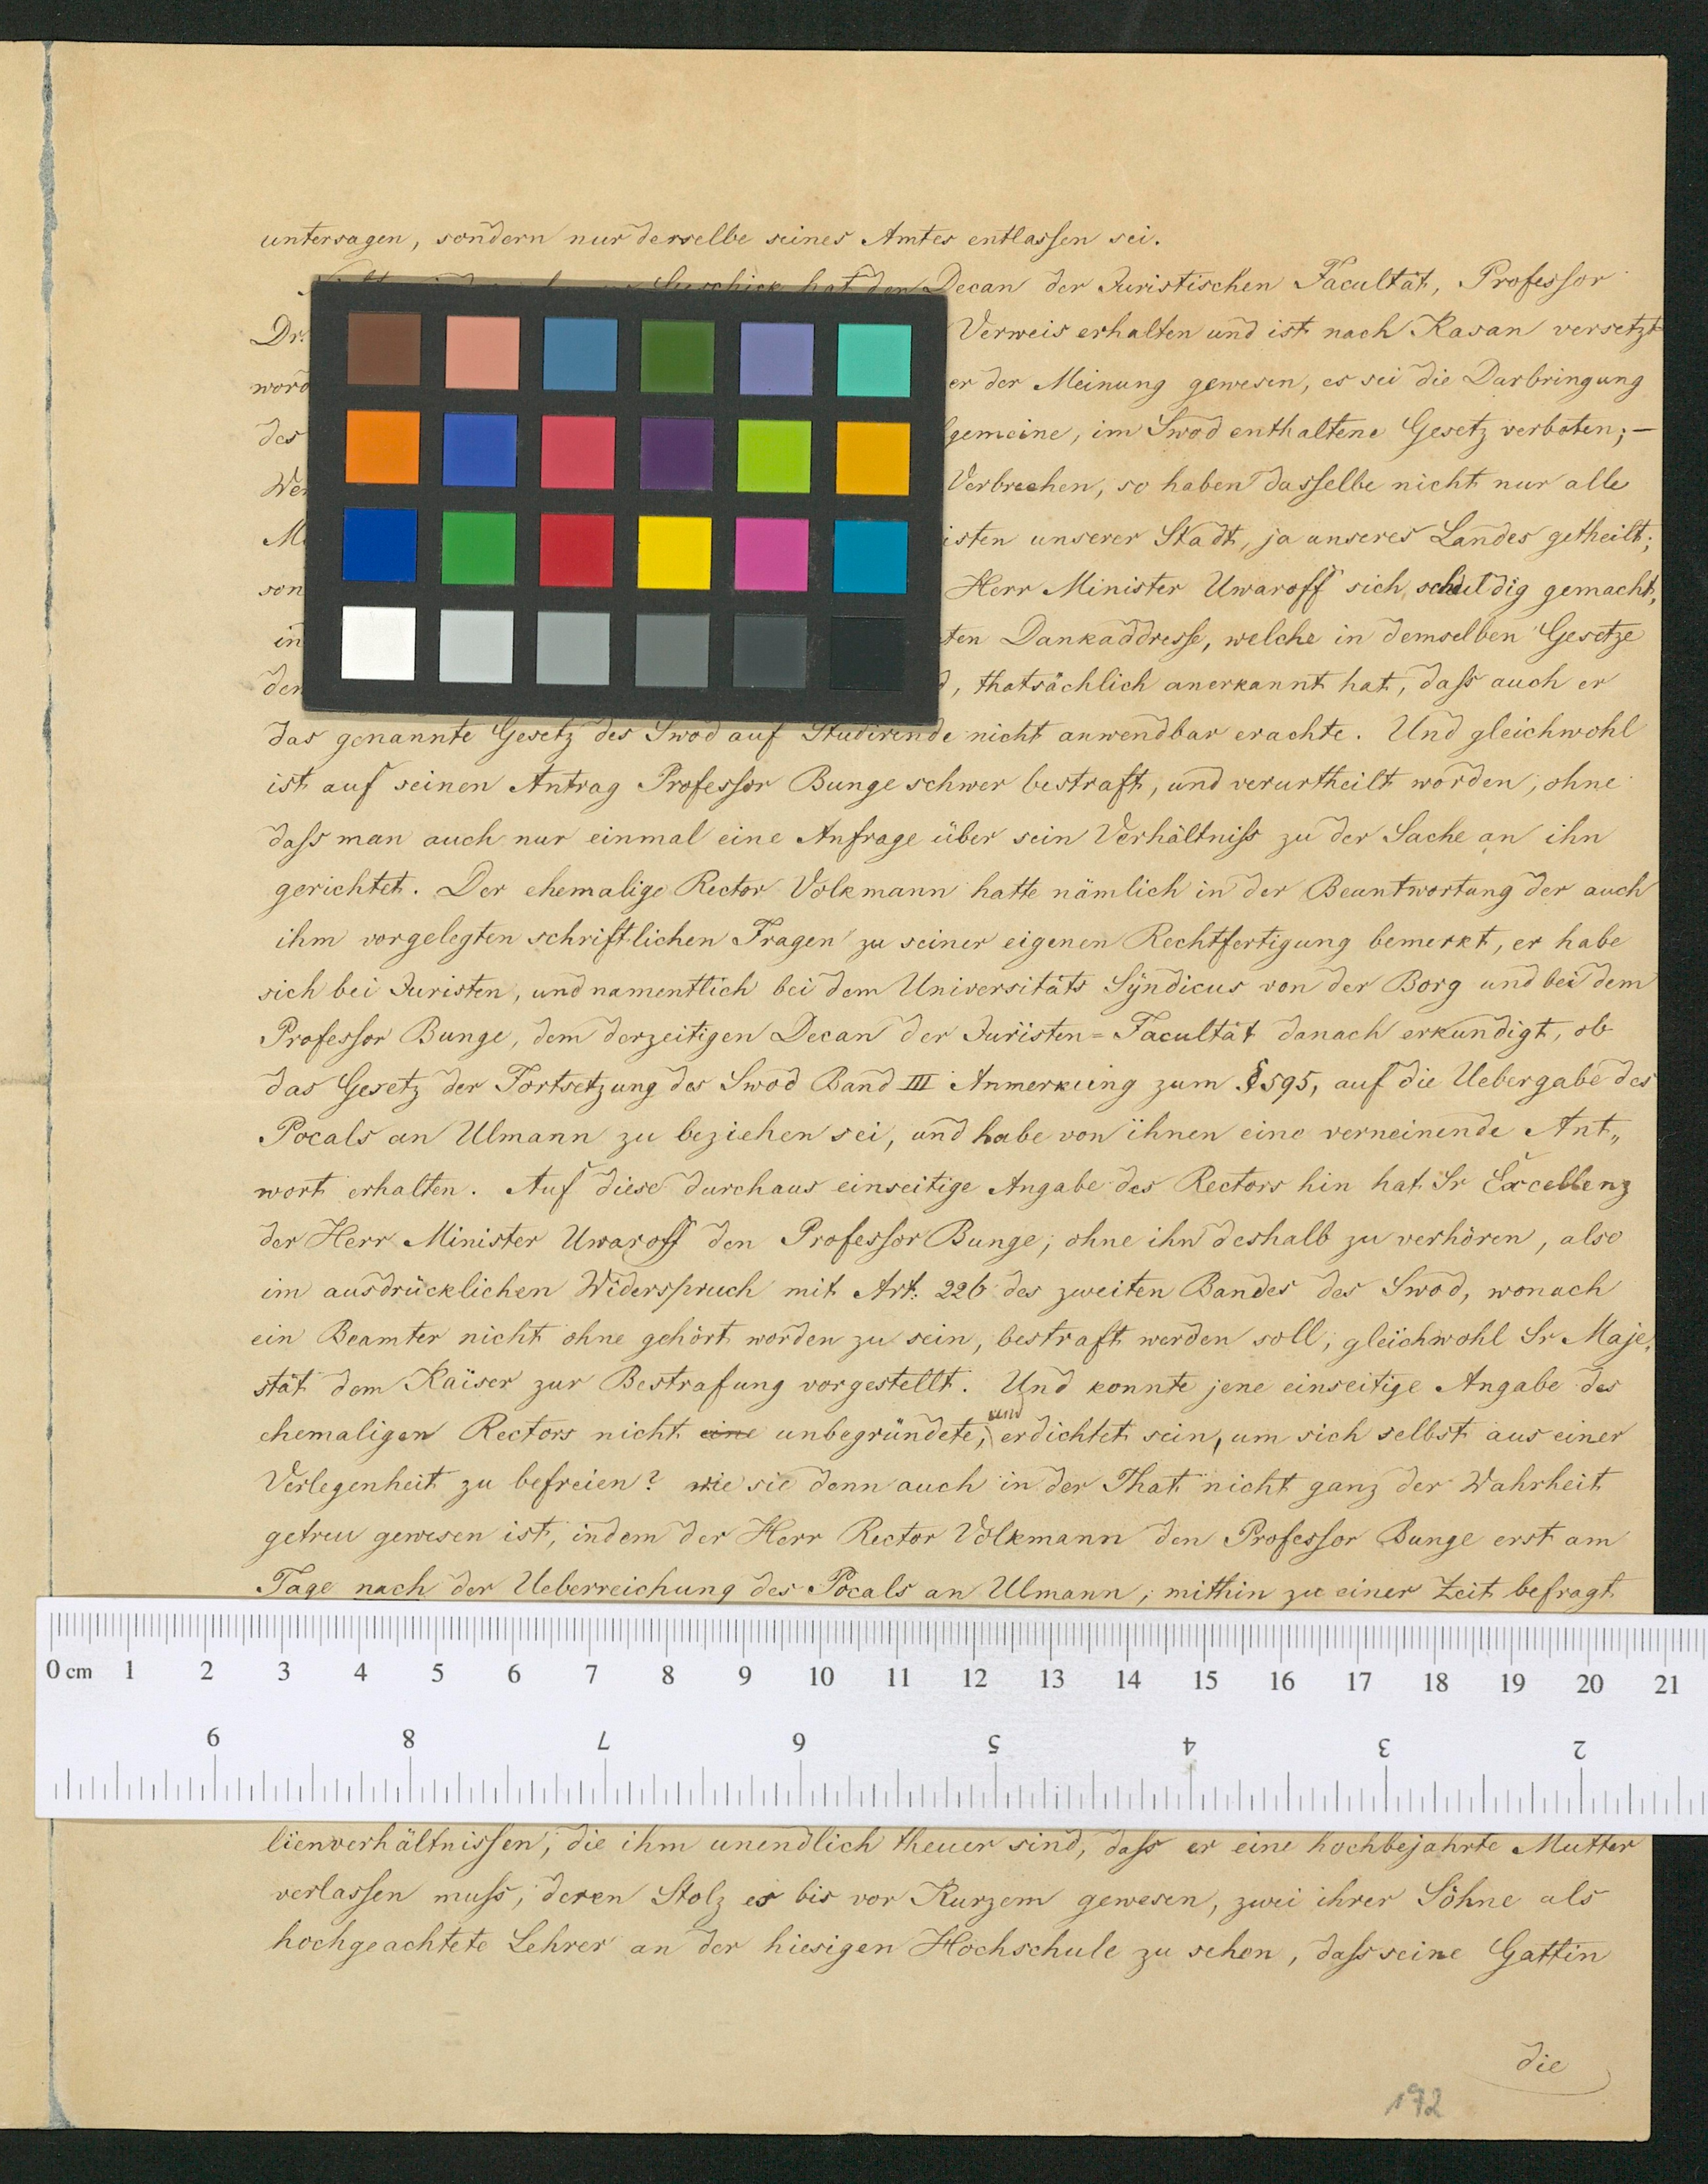 untersagen, sondern nur derselbe seines Amtes entlassen sei.
Geschick hat den Decan der Juristischen Facultät, Professor
Dr. Verweis erhalten und ist nach Kasan versetzt
word er der Meinung gewesen, es sei die Darbringung
des gemeine, im Swod enthaltene Gesetz verboten; —
We Verbrechen, so haben dasselbe nicht nur alle
M isten unserer Stadt, ja unseres Landes getheilt;
son Herr Minister Uwaroff sich schuldig gemacht,
in ten Dankaddresse, welche in demselben Gesetze
den , thatsächlich anerkannt hat, dass auch er
das genannte Gesetz des Swod auf Studirende nicht anwendbar erachte. Und gleichwohl
ist auf seinen Antrag Professor Bunge schwer bestraft, und verurtheilt worden, ohne
dass man auch nur einmal eine Anfrage über sein Verhältniss zu der Sache an ihn
gerichtet. Der ehemalige Rector Volkmann hatte nämlich in der Beantwortung der auch
ihm vorgelegten schriftlichen Fragen zu seiner eigenen Rechtfertigung bemerkt, er habe
sich bei Juristen, und namentlich bei dem Universitäts Syndicus von der Borg und bei dem
Professor Bunge, dem derzeitigen Decan der Juristen=Facultät danach erkundigt, ob
das Gesetz der Fortsetzung des Swod Band III Anmerkung zum § 595, auf die Uebergabe des
Pocals an Ulmann zu beziehen sei, und habe von ihnen eine verneinende Ant„
wort erhalten. Auf diese durchaus einseitige Angabe des Rectors hin hat Sr Excellenz
der Herr Minister Uwaroff den Professor Bunge, ohne ihn deshalb zu verhören, also
im ausdrücklichen Widerspruch mit Art. 226 des zweiten Bandes des Swod, wonach
ein Beamter nicht ohne gehört worden zu sein, bestraft werden soll, gleichwohl Sr Maje„
stät dem Kaiser zur Bestrafung vorgestellt. Und konnte jene einseitige Angabe des
ehemaligen Rectors nicht eine unbegründete, und erdichtet sein, um sich selbst aus einer
Verlegenheit zu befreien? wie sie denn auch in der That nicht ganz der Wahrheit
getreu gewesen ist, indem der Herr Rector Volkmann den Professor Bunge erst am
Tage nach der Ueberreichung des Pocals an Ulmann, mithin zu einer Zeit befragt
0 cm 1 2 3 4 5 6 7 8 9 10 11 12 13 14 15 16 17 18 19 20 21
9 8 7 6 5 4 3 2
lienverhältnissen, die ihm unendlich theuer sind, dass er eine hochbejahrte Mutter
verlassen muss, deren Stolz es bis vor Kurzem gewesen, zwei ihrer Söhne als
hochgeachtete Lehrer an der hiesigen Hochschule zu sehen, dass seine Gattin
die
172